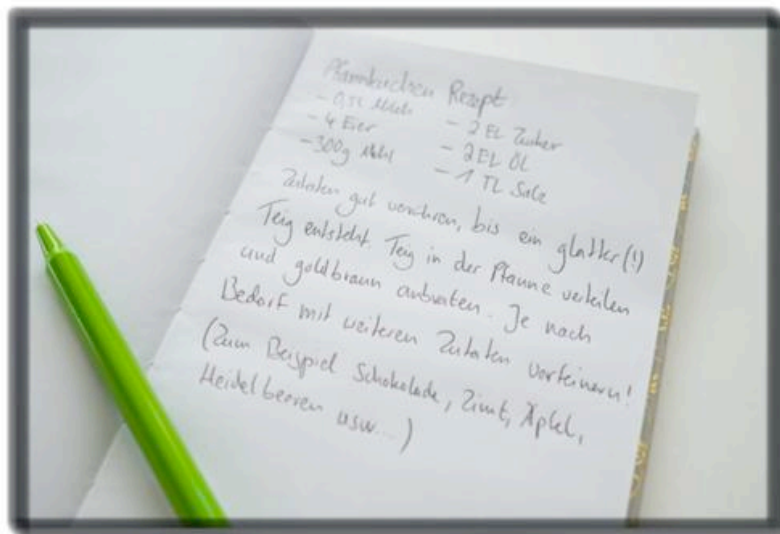 Pfannkuchen Rezept
- 0,5L Milch - 2 EL Zucker
- 4 Eier - 2 EL ÖL
- 300g Mehl - 1 TL Salz
Zutaten gut verrühren, bis ein glatter(!)
Teig entsteht. Teig in der Pfanne verteilen
und goldbraun anbraten. Je nach
Bedarf mit weiteren Zutaten verfeinern!
(Zum Beispiel Schokolade, Zimt, Äpfel,
Heidelbeeren usw...)